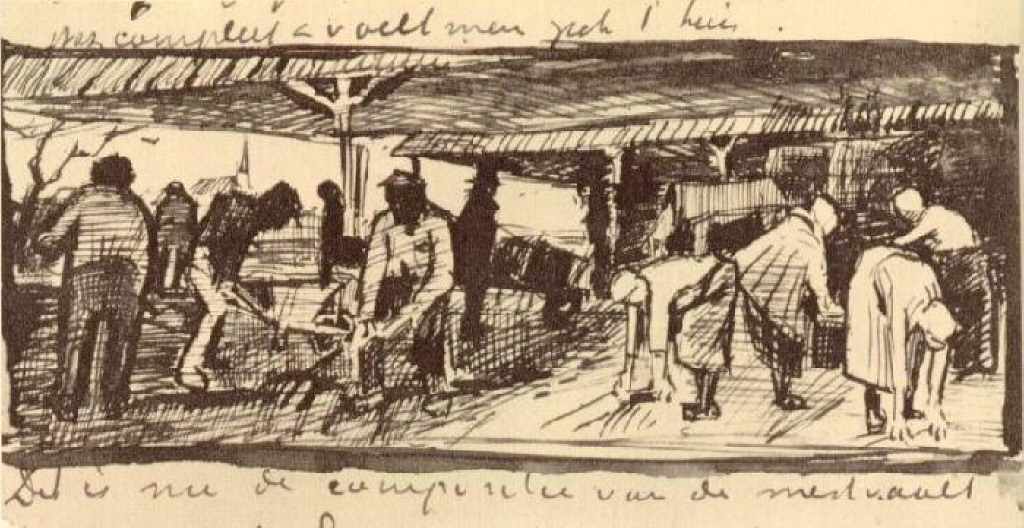 compleet & voelt men zich t huis.
Dit is nu de compositie van de mestvaalt